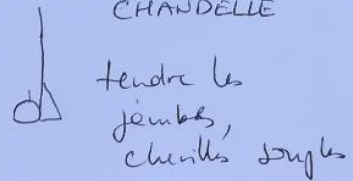 CHANDELLE
tendre les
jambes,
chevilles souples